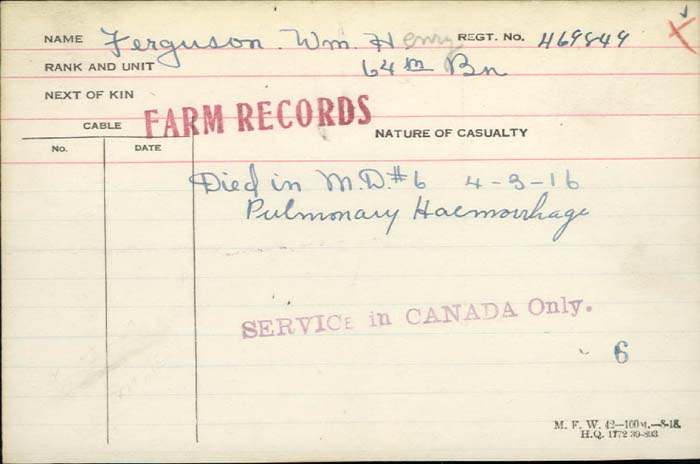 NAME Ferguson. Wm. Henry REGT. No. 469849
RANK AND UNIT 64th Bn
NEXT OF KIN
CABLE FARM RECORDS NATURE OF CASUALTY
No. DATE
Died in M.D.#6 4-3-16
Pulmonary Haemorrhage
SERVICE in CANADA Only.
6
M. F. W. 42—100M.—8-18.
H.Q. 1772 39-893